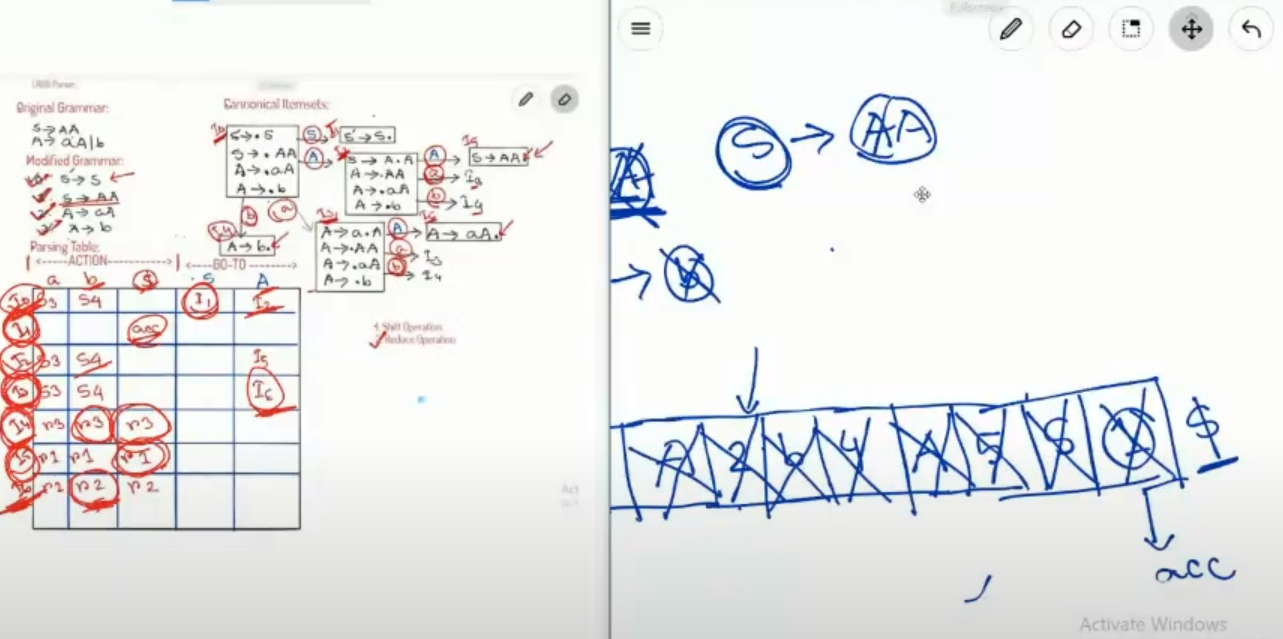 LR(0) Parser:
Original Grammar:
S→AA
A→aA|b
Modified Grammar:
S'→S ←
S→AA
A→aA
A→b
Cannonical Itemsets:
I0 S'→.S
S→.AA
A→.aA
A→.b
S I1 S'→S.
A I2 S→A.A
A→.AA
A→.aA
A→.b
A I5 S→AA.
a → I3
b → I4
b I4 A→b.
a I3 A→a.A
A→.AA
A→.aA
A→.b
A I6 A→aA.
a → I3
b → I4
Parsing Table:
ACTION GO-TO
a b $ S A
I0 S3 S4 I1 I2
I1 acc
I2 S3 S4 I5
I3 S3 S4 I6
I4 r3 r3 r3
I5 r1 r1 r1
I6 r2 r2 r2
1. Shift Operation
Reduce Operation
Fullscreen
S → AA
A
→ b
A 2 b 4 A 5 S 1 $
acc
Act
Activate Windows